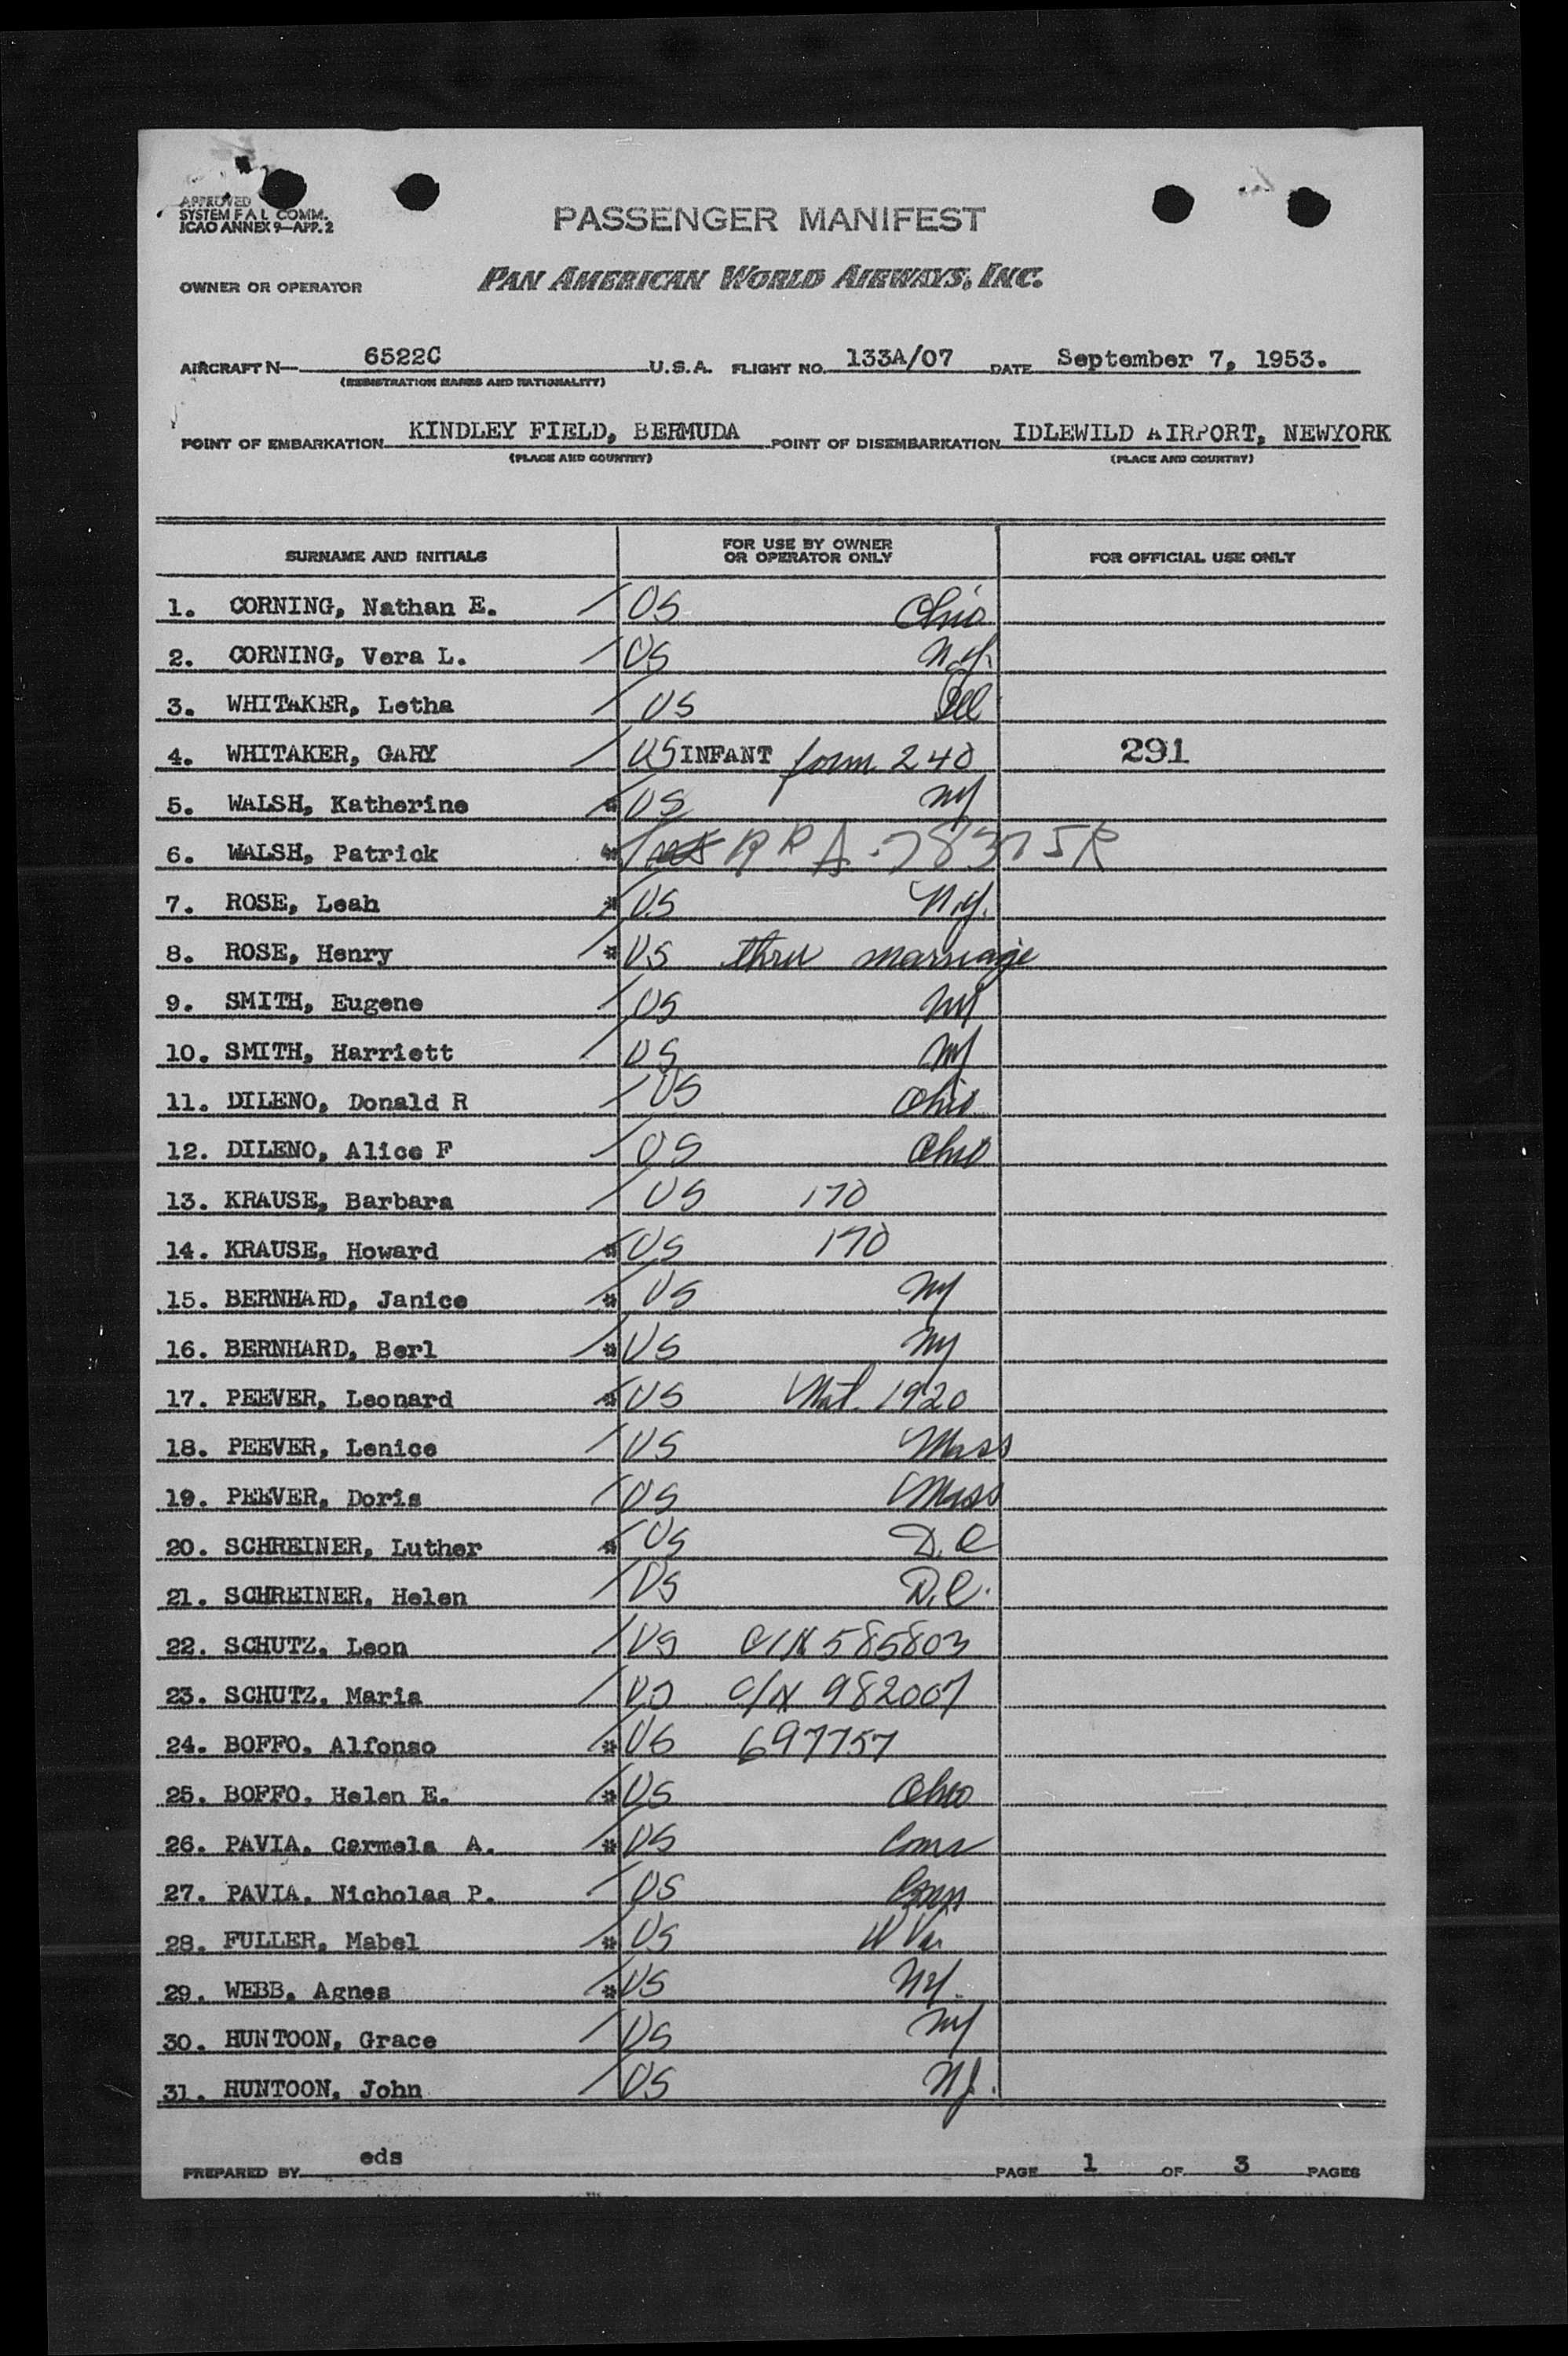 APPROVED
SYSTEM F A L COMM.
ICAO ANNEX 9—APP. 2
PASSENGER MANIFEST
OWNER OR OPERATOR PAN AMERICAN WORLD AIRWAYS, INC.
AIRCRAFT N— 6522C U.S.A. FLIGHT NO. 133A/07 DATE September 7, 1953.
(REGISTRATION MARKS AND NATIONALITY)
POINT OF EMBARKATION KINDLEY FIELD, BERMUDA POINT OF DISEMBARKATION IDLEWILD AIRPORT, NEWYORK
(PLACE AND COUNTRY) (PLACE AND COUNTRY)
SURNAME AND INITIALS FOR USE BY OWNER OR OPERATOR ONLY FOR OFFICIAL USE ONLY
1. CORNING, Nathan E. / US Ohio
2. CORNING, Vera L. / US N.Y.
3. WHITAKER, Letha / US Ill
4. WHITAKER, GARY / US INFANT form 240 291
5. WALSH, Katherine * US NY
6. WALSH, Patrick * RP A-78375R
7. ROSE, Leah * US N.Y.
8. ROSE, Henry * US thru marriage
9. SMITH, Eugene / US NY
10. SMITH, Harriett / US NY
11. DILENO, Donald R / US Ohio
12. DILENO, Alice F / US Ohio
13. KRAUSE, Barbara / US 170
14. KRAUSE, Howard * US 170
15. BERNHARD, Janice * US NY
16. BERNHARD, Berl * US NY
17. PEEVER, Leonard * US Nat. 1920
18. PEEVER, Lenice / US Mass
19. PEEVER, Doris / US Mass
20. SCHREINER, Luther * US D.C
21. SCHREINER, Helen / US D.C.
22. SCHUTZ, Leon / US C/N 585803
23. SCHUTZ, Maria / US C/N 982007
24. BOFFO, Alfonso * US 697757
25. BOFFO, Helen E. * US Ohio
26. PAVIA, Carmela A. * US Conn
27. PAVIA, Nicholas P. / US Conn
28. FULLER, Mabel * US W Va
29. WEBB, Agnes * US NY.
30. HUNTOON, Grace / US NY
31. HUNTOON, John / US NJ.
PREPARED BY eds PAGE 1 OF 3 PAGES